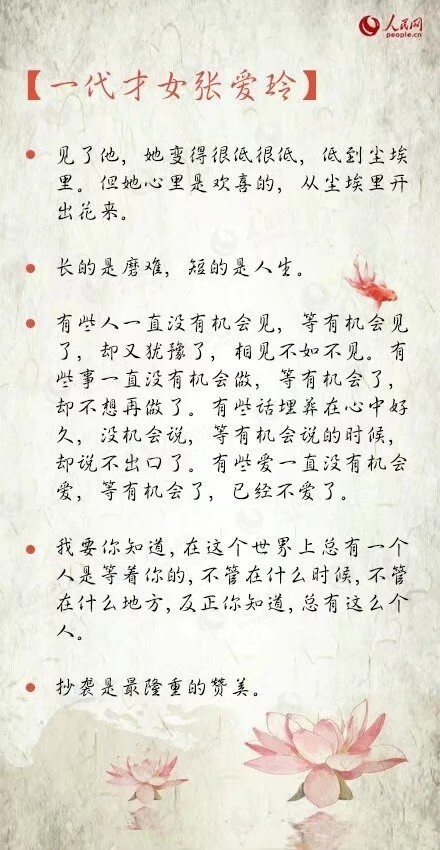 人民网
people.cn
【一代才女张爱玲】
• 见了他，她变得很低很低，低到尘埃
里。但她心里是欢喜的，从尘埃里开
出花来。
• 长的是磨难，短的是人生。
• 有些人一直没有机会见，等有机会见
了，却又犹豫了，相见不如不见。有
些事一直没有机会做，等有机会了，
却不想再做了。有些话埋葬在心中好
久，没机会说，等有机会说的时候，
却说不出口了。有些爱一直没有机会
爱，等有机会了，已经不爱了。
• 我要你知道,在这个世界上总有一个
人是等着你的,不管在什么时候,不管
在什么地方,反正你知道,总有这么个
人。
• 抄袭是最隆重的赞美。